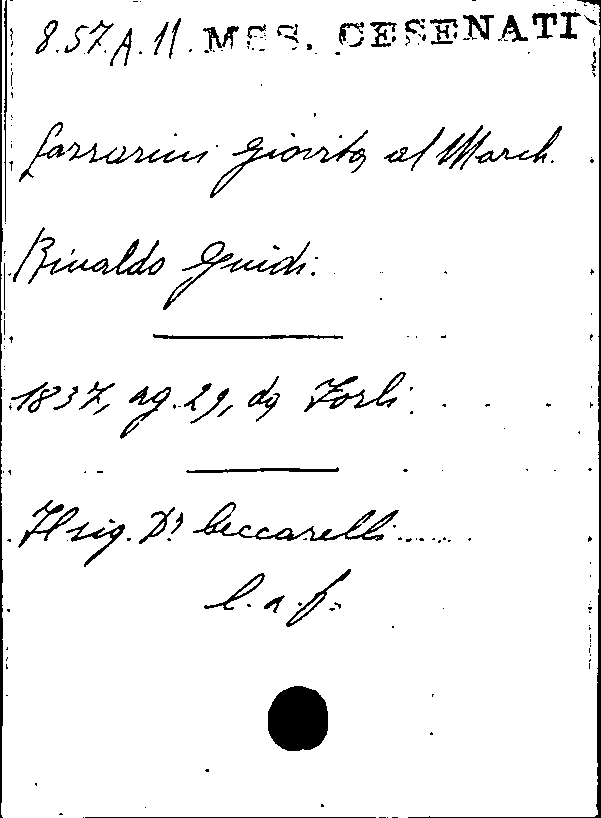 8.57.A.11. MSS. CESENATI
Lazzarini Giovita al March.
Rinaldo Guidi.
1837, ag. 29, da Forlì.
Il sig. Dr Ceccarelli......
L. a. f.